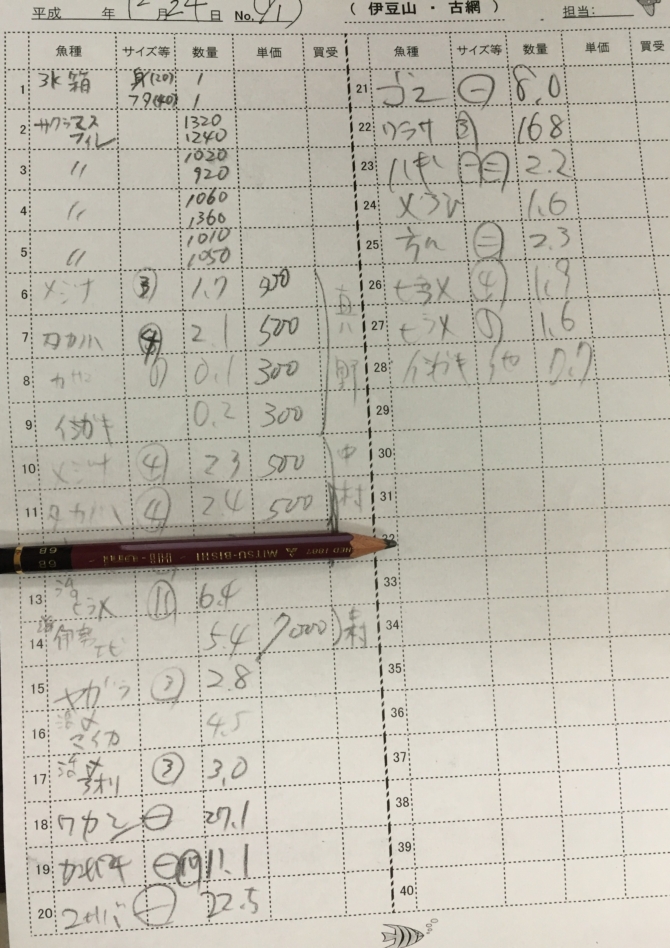 平成 年 12月24日 No. (1) ( 伊豆山 ・ 古網 ) 担当:
魚種 サイズ等 数量 単価 買受
1 氷箱 身(20) 1
フタ(40) 1
2 サクラマス 1320
フィレ 1240
3 〃 1020
920
4 〃 1060
1360
5 〃 1010
1050
6 メジナ ③ 1.7
7 タカハ ④ 2.1 500
8 0.1 300
9 イシガキ 0.2 300
真野
10 メジナ ④ 2.3 500
11 タカハ ④ 2.4 500
中村
MITSU-BISHI
6B
13 活 ヒラメ ⑪ 6.4
14 活 伊勢エビ 5.4 7000
15 ヤガラ ③ 2.8
16 活〆 マイカ 4.5
17 活〆 アオリ ③ 3.0
18 ワカシ ㊀ 27.1
19 ㊀ 11.1
20 ㊀ 22.5
魚種 サイズ等 数量 単価 買受
21 ㊀ 8.0
22 ワラサ ③ 168
23 ㊀㊁ 2.2
24 1.6
25 ㊁ 2.3
26 ヒラメ ④ 1.9
27 ヒラメ 1.6
28 イシガキ 7.7
29
30
31
32
33
34
35
36
37
38
39
40